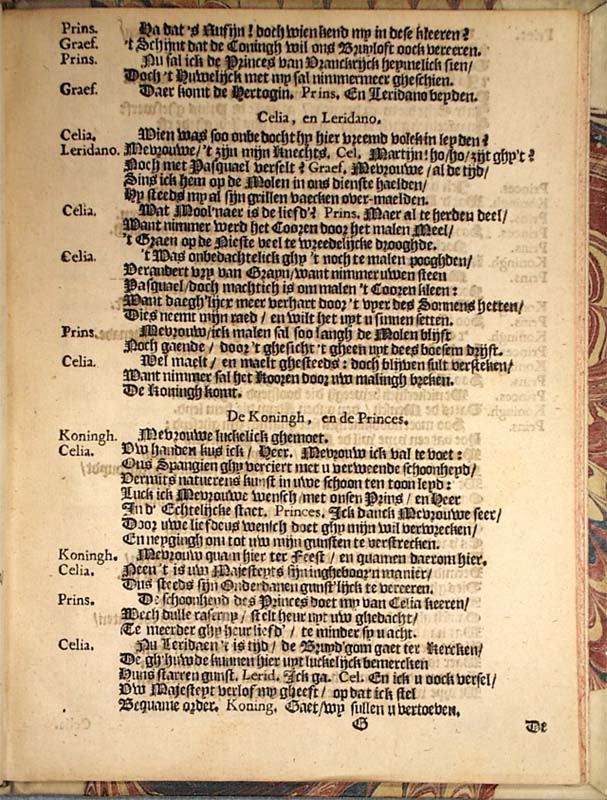 Prins. Ha dat 's Ausijn! doch wien kend my in dese kleeren?
Graef. 't Schijnt dat de Coningh wil ons Bruyloft oock vereeren.
Prins. Nu sal ick de Princes van Vranckrijck heymelick sien/
Doch 't Huwelijck met my sal nimmermeer gheschien.
Graef. Daer komt de Hertogin. Prins. En Leridano beyden.
Celia, en Leridano.
Celia. Wien was soo onbedocht hy hier vreemd volck in leyden?
Leridano. Mevrouwe/ 't zijn mijn Knechts. Cel. Martijn! ho/ho/ zijt ghy't?
Noch met Pasquael verselt? Graef. Mevrouwe/ al de tijd/
Sins ick hem op de Molen in ons dienste haelden/
Hy steeds my al sijn grillen vaecken over-maelden.
Celia. Wat Mool'naer is de liefd'? Prins. Maer al te herden deel/
Want nimmer werd het Cooren door het malen Meel/
't Graen op de Nieste veel te wreedelijcke drooghde.
Celia. 't Was onbedachtelick ghy 't noch te malen pooghden/
Verandert vry van Grayn/ want nimmer uwen steen
Pasquael/ doch machtich is om malen 't Cooren kleen:
Want daegh'lijcx meer verhart door 't vyer des Sonnens hetten/
Dies neemt mijn raed/ en wilt het uyt u sinnen setten.
Prins. Mevrouw/ ick malen sal soo langh de Molen blijft
Noch gaende/ door 't ghesicht 't gheen uyt dees boesem drijft.
Celia. Wel maelt/ en maelt ghesteeds: doch blijven sult versteken/
Want nimmer sal het Kooren door uw malingh breken.
De Koningh komt.
De Koningh, en de Princes.
Koningh. Mevrouwe luckelick ghemoet.
Celia. Uw handen kus ick/ Heer. Mevrouw ick val te voet:
Ons Spangien ghy verciert met u verweende schoonheyd/
Dermits natuerens kunst in uwe schoon ten toon leyd:
Luck ick Mevrouwe wensch/ met onsen Prins/ en Heer
In d' Echtelijcke staet. Princes. Ick danck Mevrouwe seer/
Door uwe liefdens wensch doet ghy mijn wil verwrecken/
En neygingh om tot uw mijn gunsten te verstrecken.
Koningh. Mevrouw quam hier ter Feest/ en quamen daerom hier.
Celia. Neen 't is uw Majesteyts sijn ingheboor'n manier/
Ons steeds sijn Onderdanen gunst'lijck te vereeren.
Prins. De schoonheyd des Princes doet my van Celia keeren/
Wech dulle raserny/ stelt heur uyt uw ghedacht/
Te meerder ghy heur liefd'/ te minder sy u acht.
Celia. Nu Leridaen 't is tijd/ de Bruyd'gom gaet ter Kercken/
De gh'huwde kunnen hier uyt luckelijck bemercken
Huns starren gunst. Lerid. Ick ga. Cel. En ick u oock versel/
Uw Majesteyt verlof my gheeft/ op dat ick stel
Bequame order. Koning. Gaet/ wy sullen u vertoeven.
G De